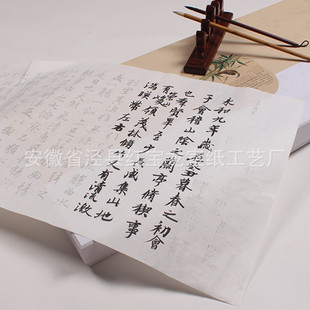 永和九年歲在癸丑暮春之初會
于會稽山陰之蘭亭脩稧事
也羣賢畢至少長咸集此地
有崇山峻領茂林脩竹又有清流激
湍暎帶左右
安徽省泾县红宝 宣纸工艺厂